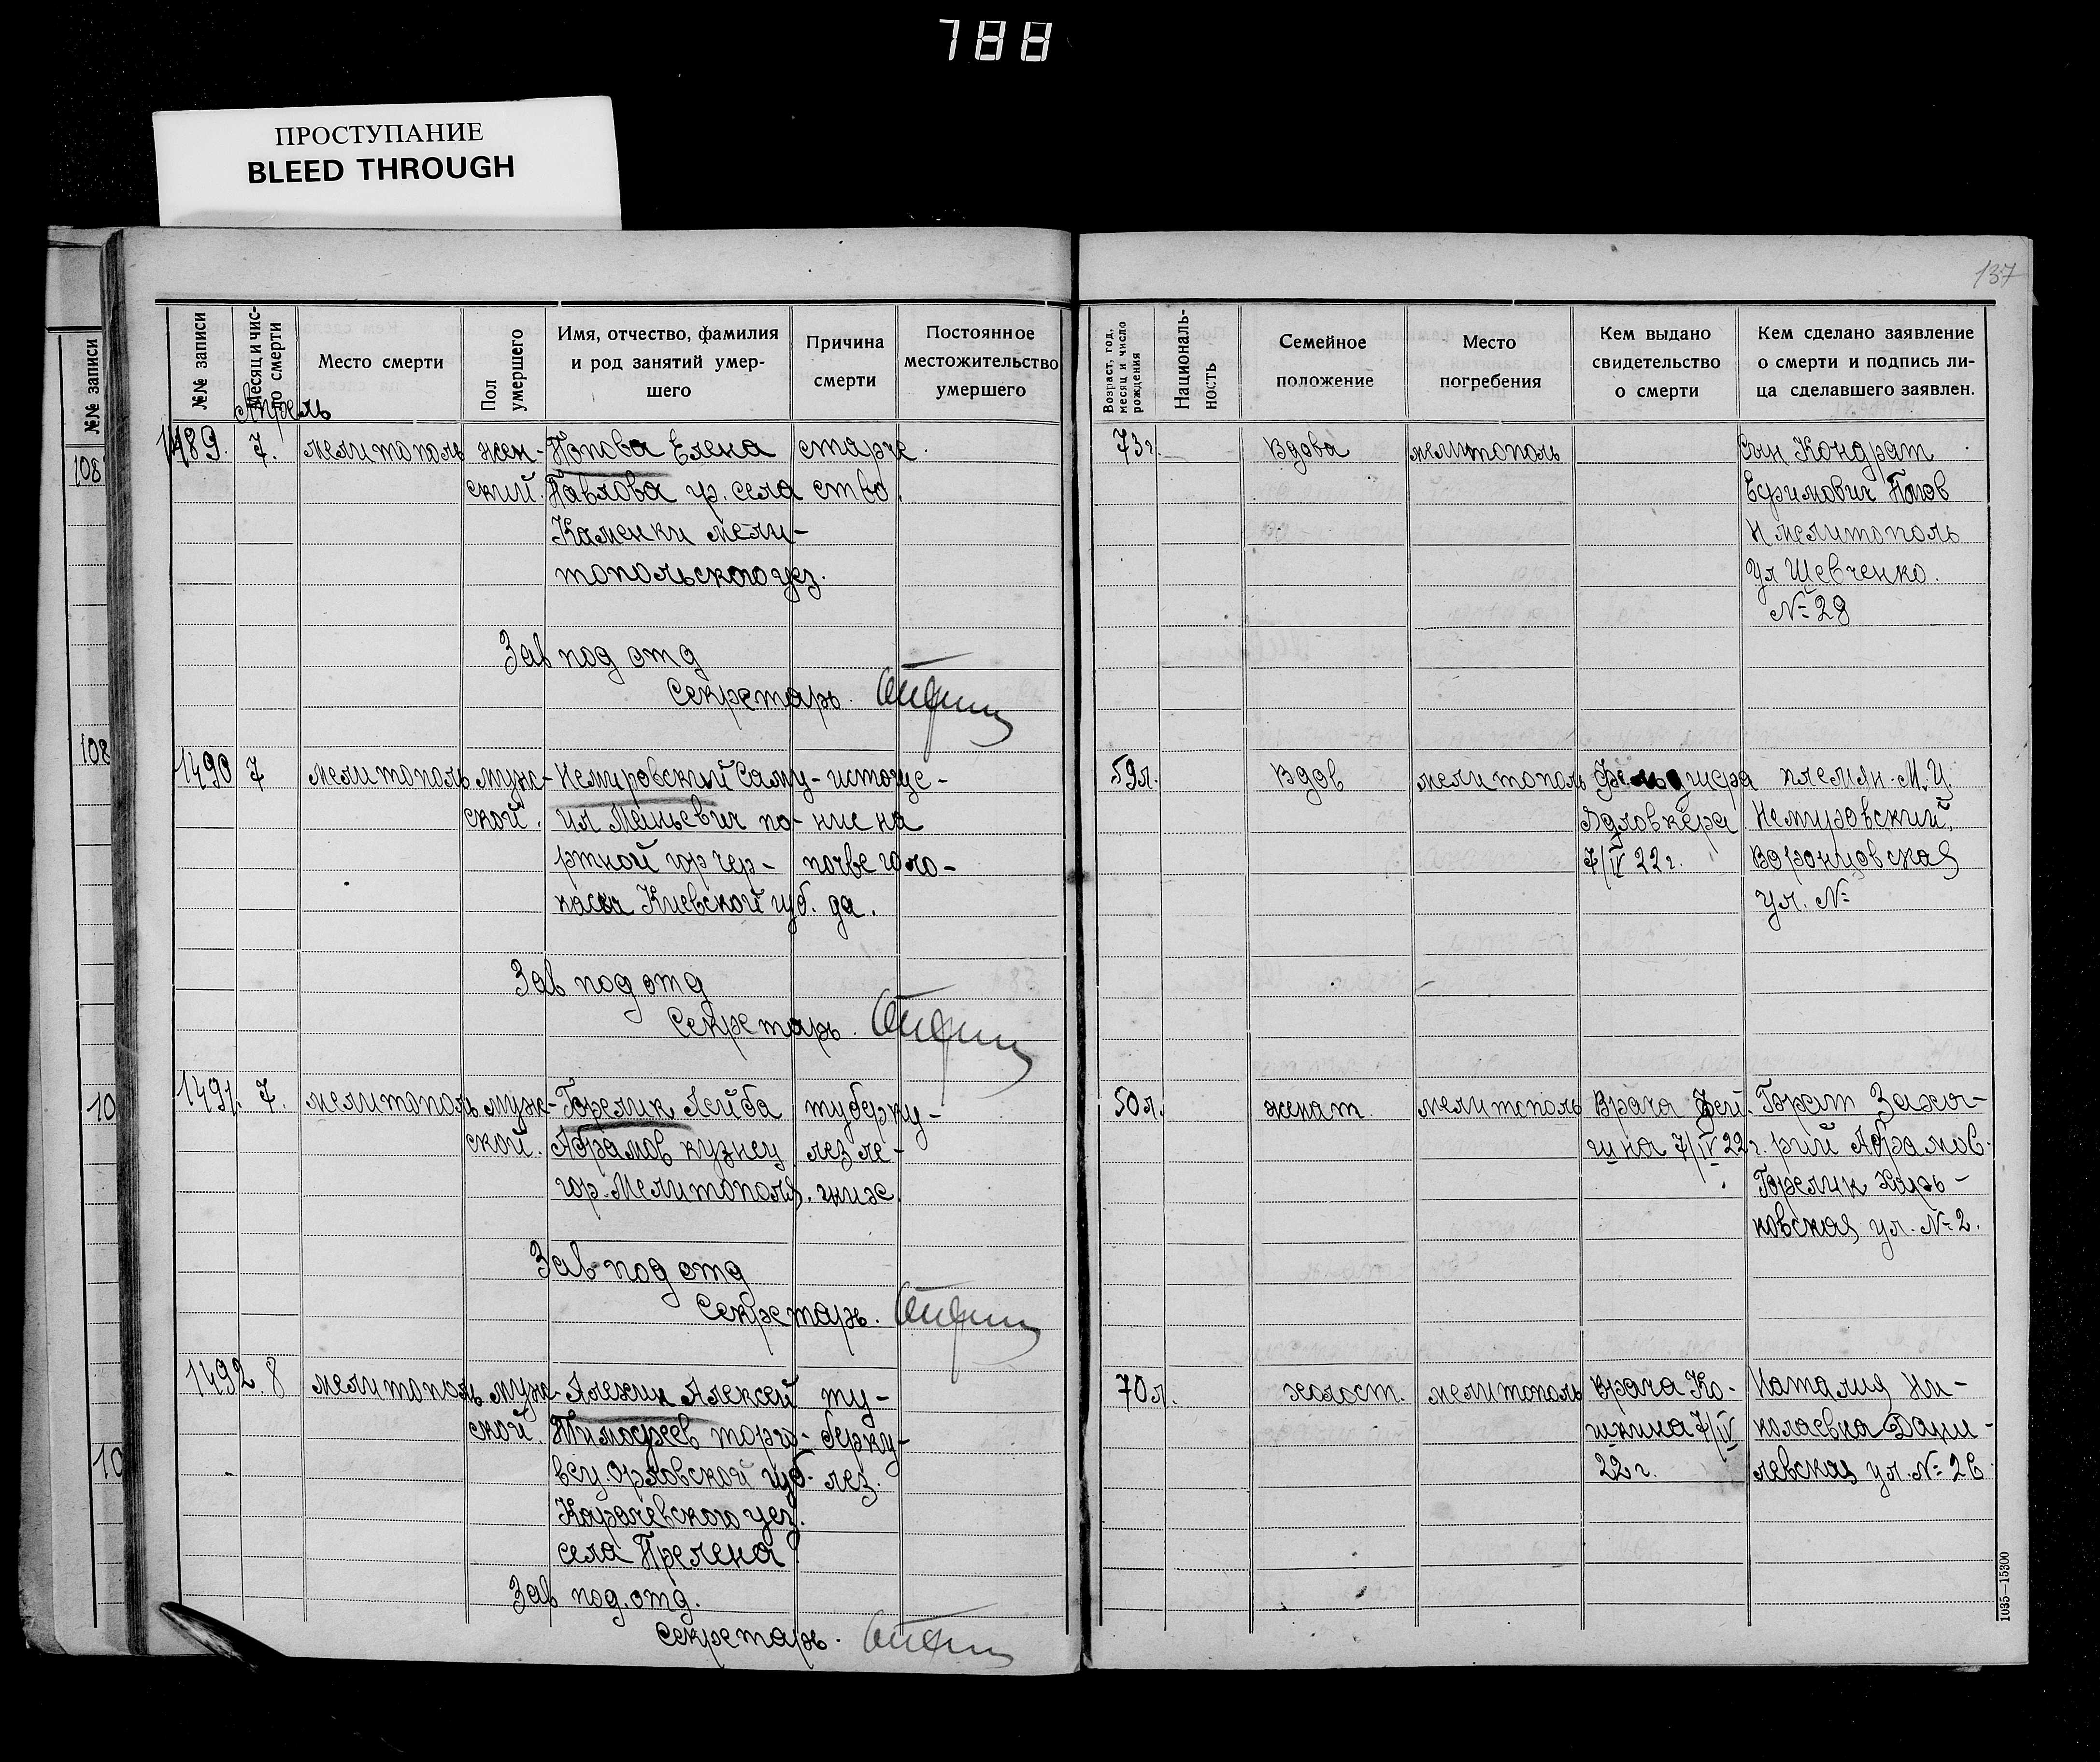 788
ПРОСТУПАНИЕ
BLEED THROUGH
137
№№ записи
№№ записи
Месяц и чис-
ло смерти
Место смерти
Пол
умершего
Имя, отчество, фамилия
и род занятий умер-
шего
Причина
смерти
Постоянное
местожительство
умершего
Возраст, год,
месяц и число
рождения
Националь-
ность
Семейное
положение
Место
погребения
Кем выдано
свидетельство
о смерти
Кем сделано заявление
о смерти и подпись ли-
ца сделавшего заявлен.
Апрель
108
1489. 7. мелитополь жен- Попова Елена старче 73 г. вдова мелитополь Сын Кондрат
ский. Павлова гр. села ство. Ефимович Попов
Каменки мели- Н мелитополь
топольского уез. Ул Шевченко.
№ 28
Зав под отд
Секретарь.
108
1490 7 мелитополь муж- Немировский Саму- истоще- 59 л. вдов мелитополь Фельдшера племян. М. И.
ской. ил Меньевич по- ние на Немировский,
ртной гор чер- почве голо- 7/IV 22 г. Воронцовская
касы Киевской губ. да. ул. №
Зав под отд
Секретарь.
10
1491. 7. мелитополь муж- Горелик Лейба туберку- 50 л. женат мелитополь Врача Брат Заха-
ской. Абрамов кузнец лез ле- 7/IV 22 г. рий Абрамов.
гор. Мелитополя. гких Горелик Харь-
ковская ул. № 2.
Зав под отд
Секретарь.
1492. 8 мелитополь муж- Алехин Алексей ту- 70 л. холост. мелитополь врача Ко- Наталия Ни-
ской. Тимофеев торго- берку- шкина 7/IV колаевна Дани-
вец. Орловской губ. лез. 22 г. левская ул. №
10
Карачевского уез.
села
Зав под. отд.
Секретарь.
1035—15300